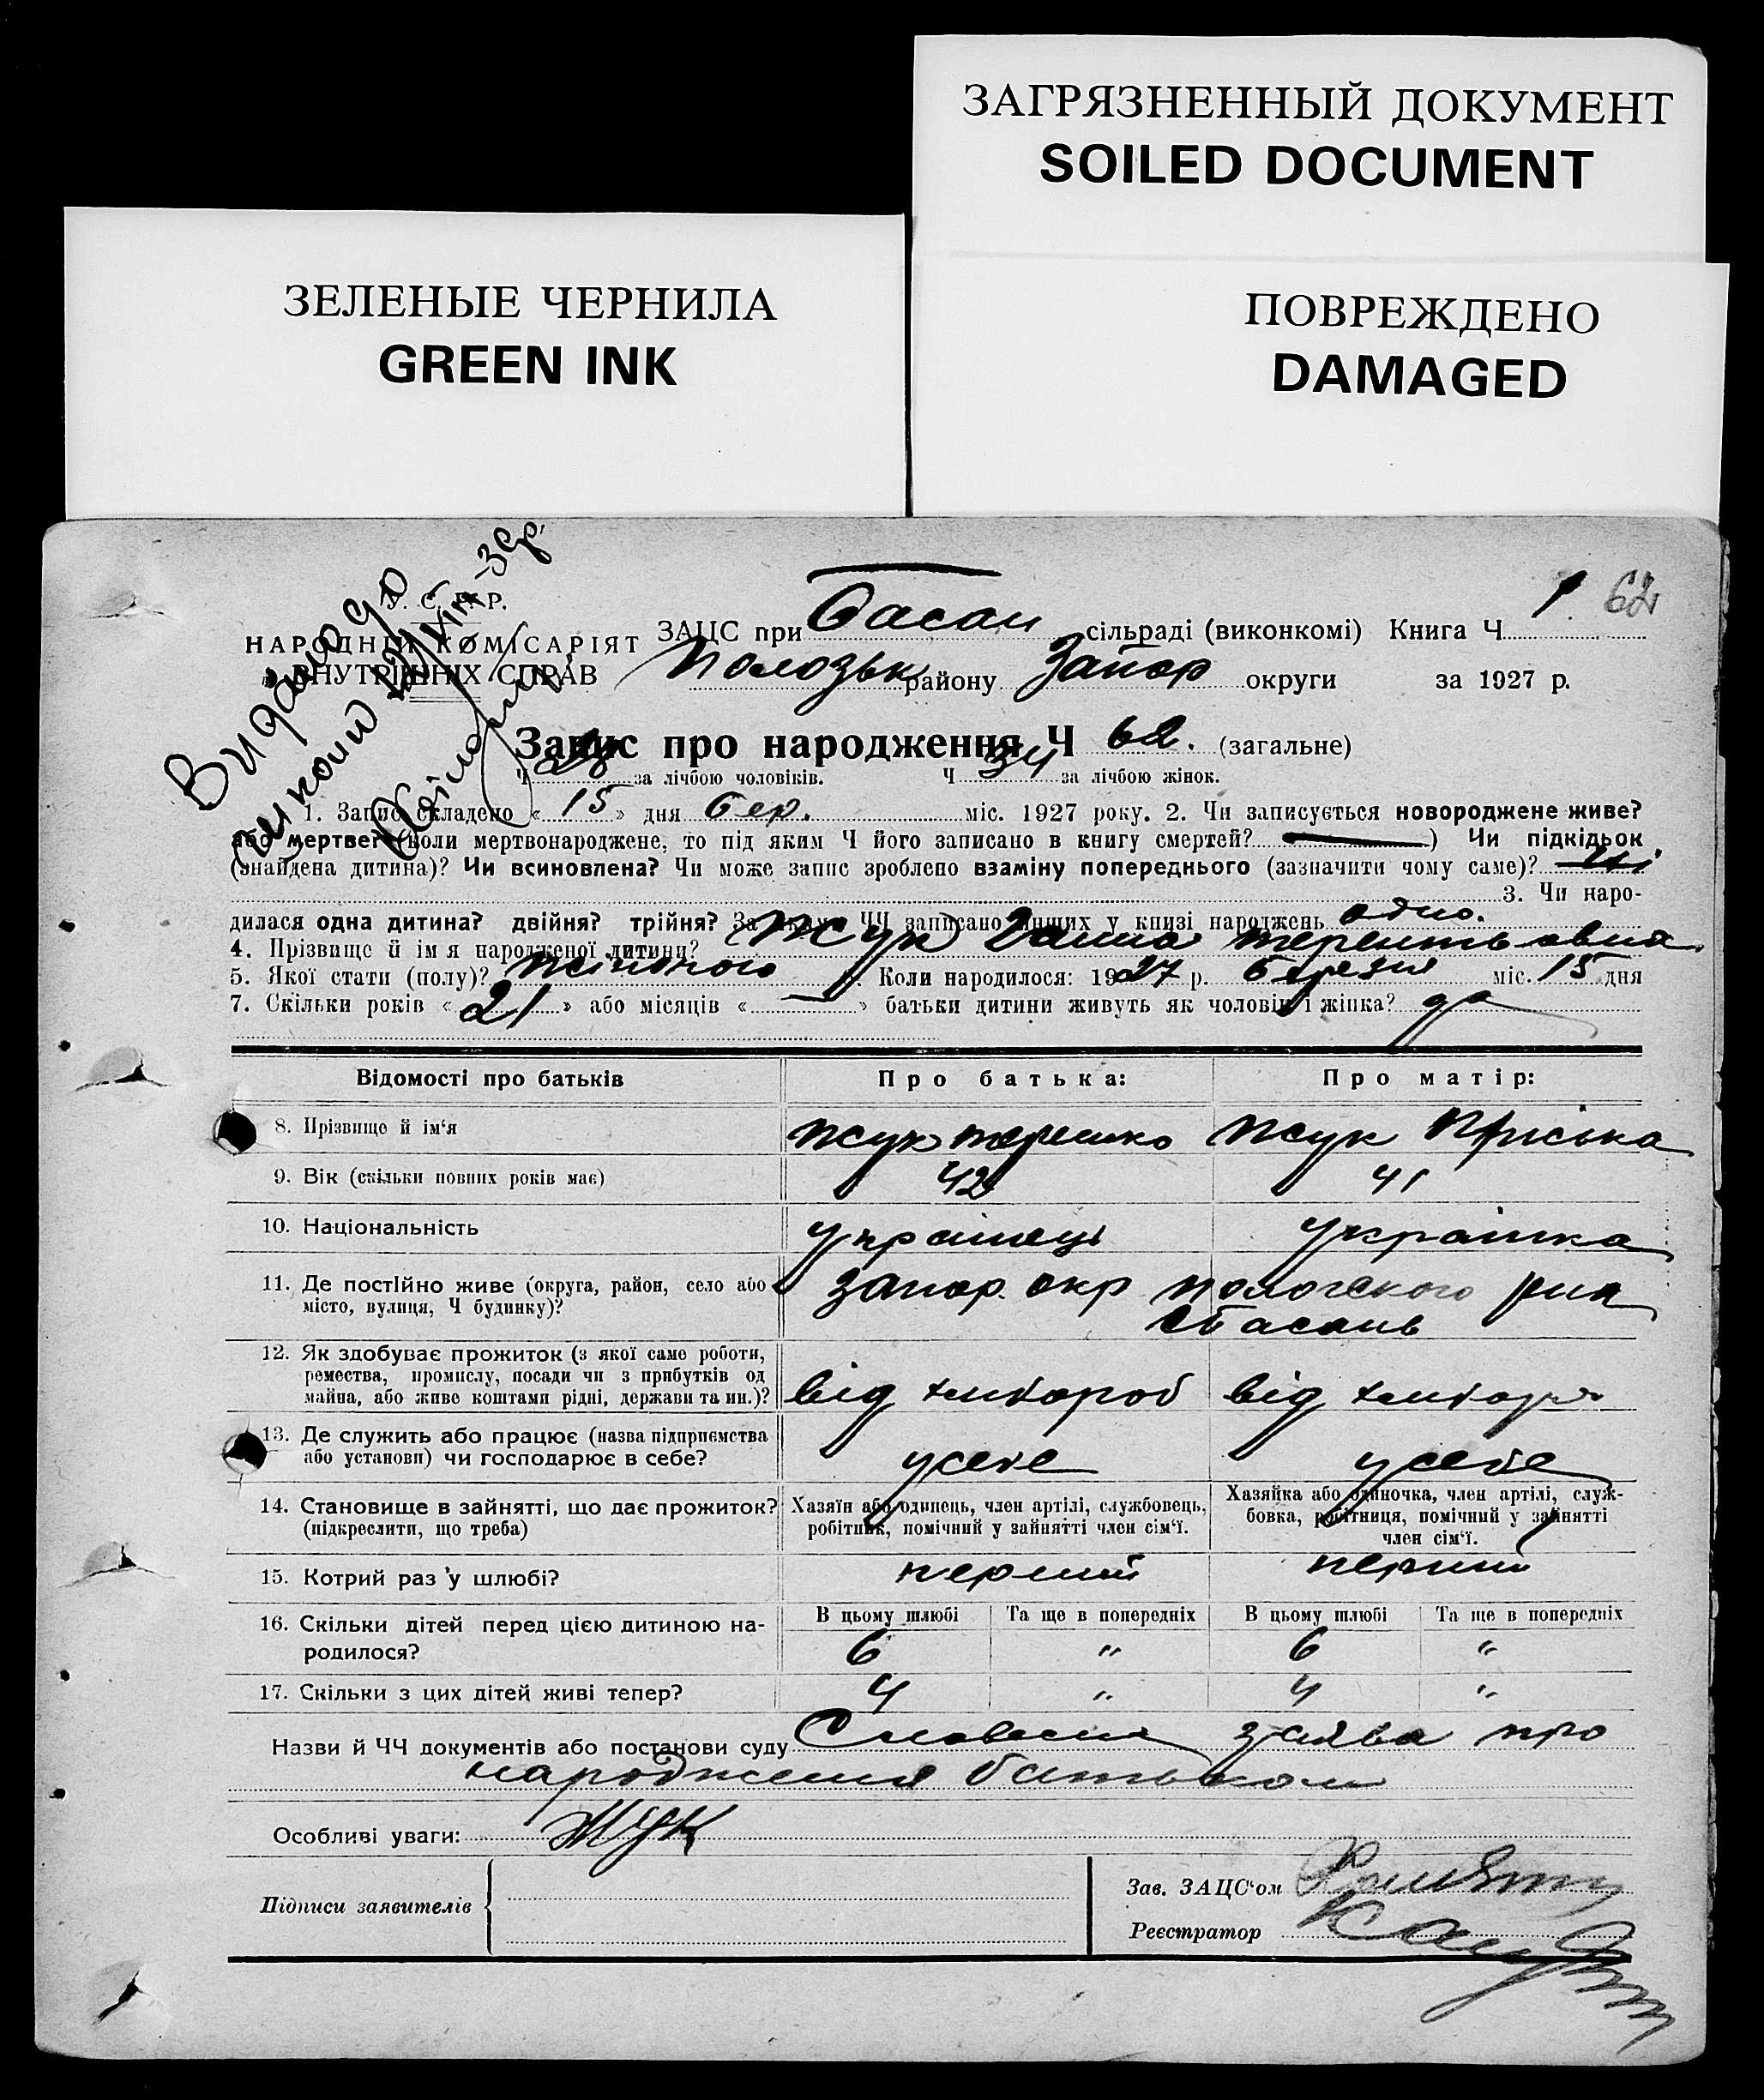 ЗАГРЯЗНЕННЫЙ ДОКУМЕНТ
SOILED DOCUMENT
ЗЕЛЕНЫЕ ЧЕРНИЛА
GREEN INK
ПОВРЕЖДЕНО
DAMAGED
62
У. С. Р. Р.
НАРОДНІЙ КОМІСАРІЯТ
ВНУТРІШНІХ СПРАВ
ЗАЦС при Басан сільраді (виконкомі) Книга Ч 1.
Полозьк району Запор округи за 1927 р.
Запис про народження Ч 62. (загальне)
Ч 28 за лічбою чоловіків. Ч 34 за лічбою жінок.
1. Запис складено « 15 » дня бер. міс. 1927 року. 2. Чи записується новороджене живе?
або мертве? (коли мертвонароджене, то під яким Ч його записано в книгу смертей? ) Чи підкідьок
(знайдена дитина)? Чи всиновлена? Чи може запис зроблено взаміну попереднього (зазначити чому саме)? ні
3. Чи наро-
дилася одна дитина? двійня? трійня? За яким ЧЧ записано инших у книзі народжень одно.
4. Прізвище й ім я народженої дитини? Жук Ганна Терентьовна
5. Якої стати (полу)? жіночого Коли народилося: 1927 р. березня міс. 15 дня
7. Скільки років « 21 » або місяців « — » батьки дитини живуть як чоловік і жінка? да
Відомості про батьків Про батька: Про матір:
8. Прізвище й ім‘я Жук Терешко Жук Пріська
9. Вік (скільки повних років має) 42 41
10. Національність українець українка
11. Де постійно живе (округа, район, село або
місто, вулиця, Ч будинку)? Запор. окр Пологського рай
с Басань
12. Як здобуває прожиток (з якої саме роботи,
ремества, промислу, посади чи з прибутків од
майна, або живе коштами рідні, держави та ин.)? від хлібороб від хлібороб
13. Де служить або працює (назва підприємства
або установи) чи господарює в себе? усебе усебе
14. Становище в зайнятті, що дає прожиток?
(підкреслити, що треба)
Хазяїн або одинець, член артілі, службовець,
робітник, помічний у зайнятті член сім‘ї.
Хазяйка або одиночка, член артілі, служ-
бовка, робітниця, помічний у зайнятті
член сім‘ї.
15. Котрий раз у шлюбі? перший перший
16. Скільки дітей перед цією дитиною на-
родилося?
В цьому шлюбі Та ще в попередніх В цьому шлюбі Та ще в попередніх
6 " 6 "
17. Скільки з цих дітей живі тепер? 4 " 4 "
Назви й ЧЧ документів або постанови суду Словесна заява про
народження батьком
Особливі уваги: Жук
Підписи заявителів
Зав. ЗАЦС‘ом
Реєстратор